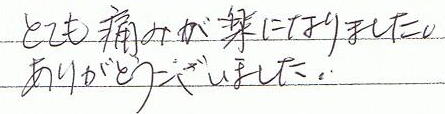 とても痛みが楽になりました。
ありがとうございました。